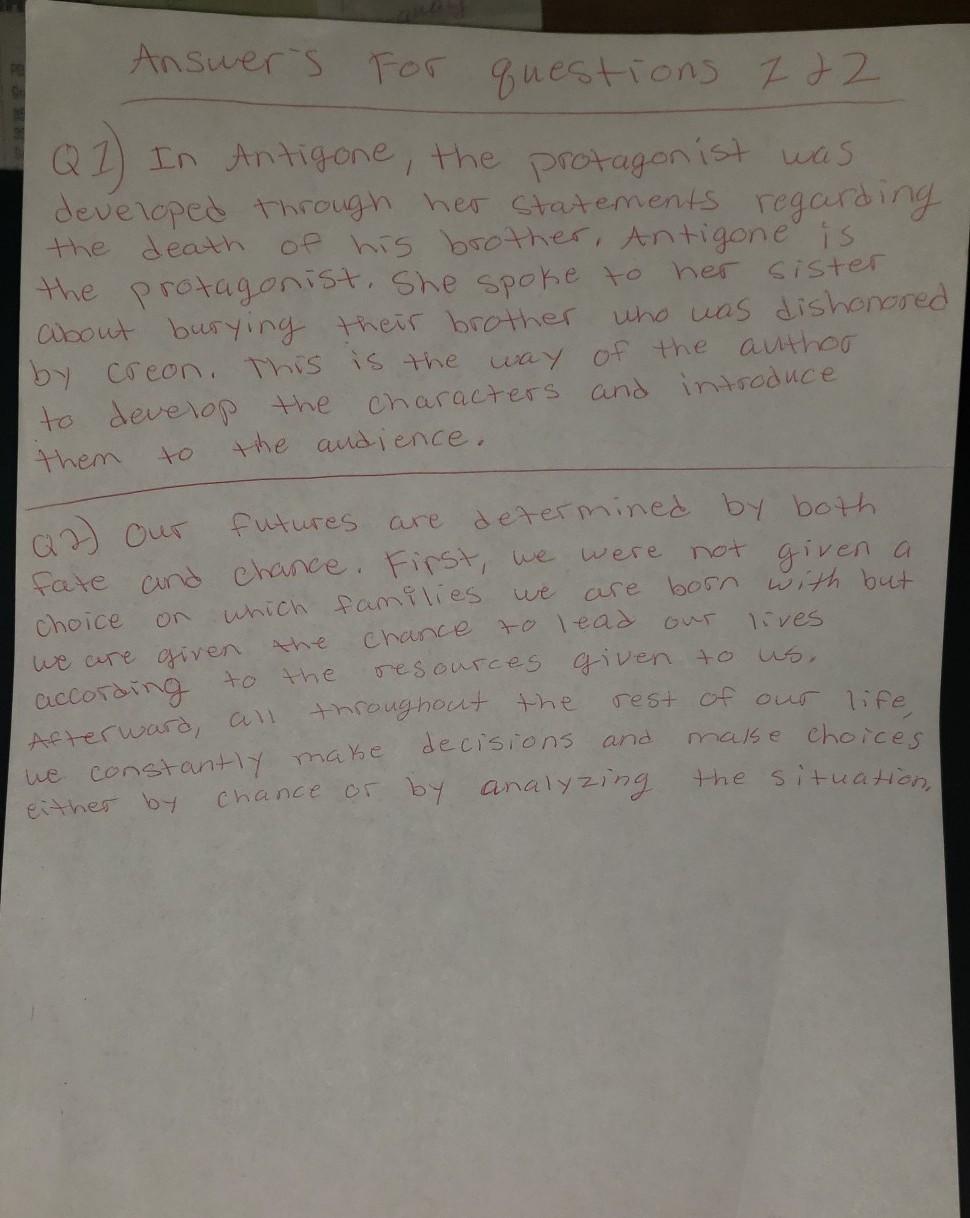 Answer's For questions 1 & 2
Q1) In Antigone, the protagonist was
developed through her statements regarding
the death of his brother. Antigone is
the protagonist. She spoke to her sister
about burying their brother who was dishonored
by creon. This is the way of the author
to develop the characters and introduce
them to the audience.
Q2) Our futures are determined by both
fate and chance. First, we were not given a
choice on which families we are born with but
we are given the chance to lead our lives
according to the resources given to us.
Afterward, all throughout the rest of our life,
we constantly make decisions and make choices
either by chance or by analyzing the situation.